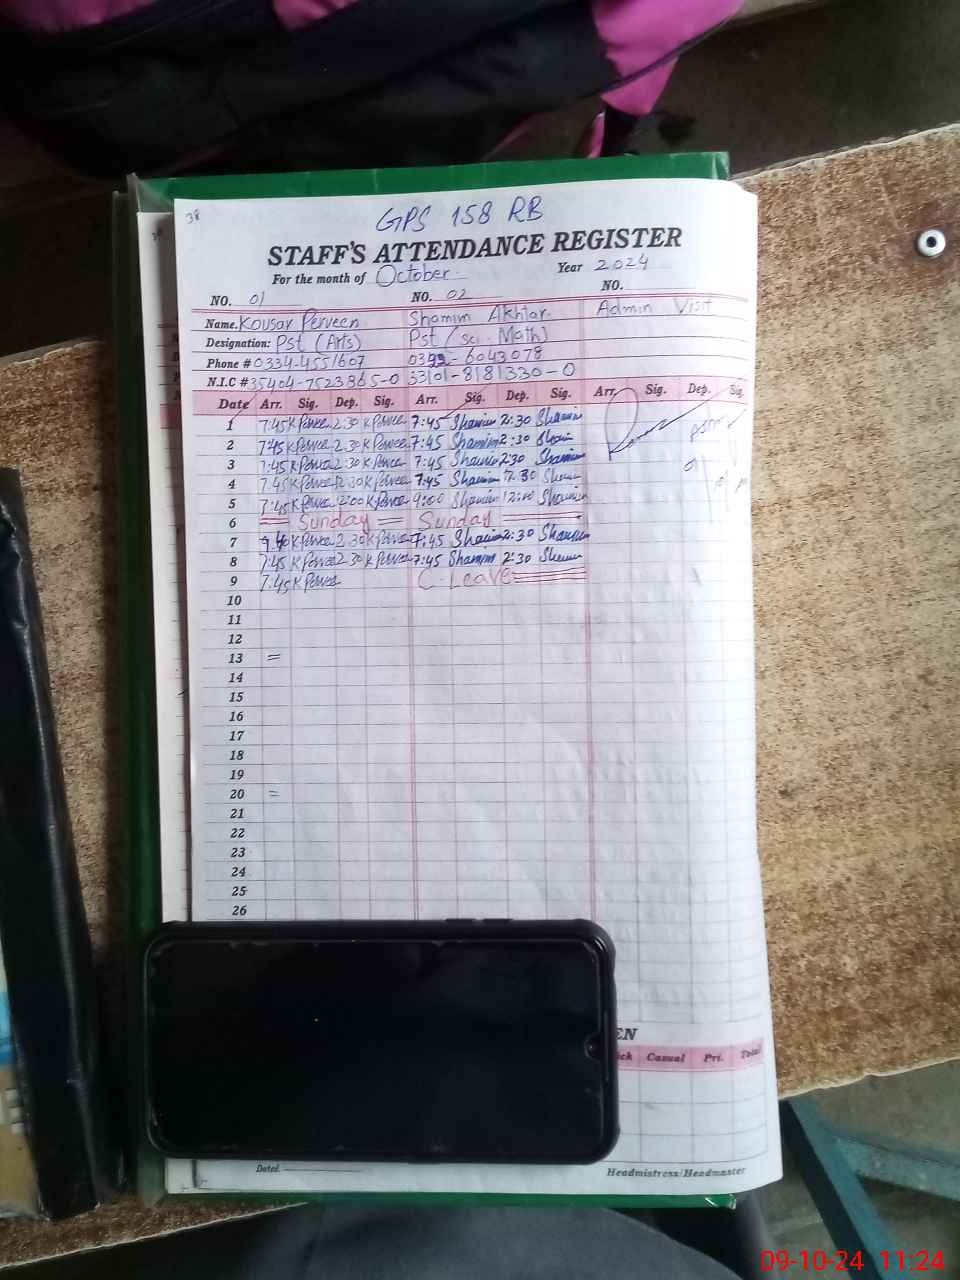 38
GPS 158 RB
STAFF'S ATTENDANCE REGISTER
For the month of October Year 2024
NO. 01 NO. 02 NO.
Name. Kousar Perveen Shamim Akhtar Admin Visit
Designation: Pst (Arts) Pst (sci. Math)
Phone # 0334-4551607 6043078
N.I.C # 35404-7523865-0 33101-8181330-0
Date Arr. Sig. Dep. Sig. Arr. Sig. Dep. Sig. Arr. Sig. Dep. Sig.
1 7:45 K Perveen 2:30 K Perveen 7:45 Shamim 2:30 Shamim
2 7:45 K Perveen 2:30 K Perveen 7:45 Shamim 2:30 Shamim
3 7:45 K Perveen 2:30 K Perveen 7:45 Shamim 2:30 Shamim
4 7:45 K Perveen 12:30 K Perveen 7:45 Shamim 12:30 Shamim
5 7:45 K Perveen 12:00 K Perveen 9:00 Shamim 12:00 Shamim
6 = Sunday = Sunday
7 K Perveen 2:30 K Perveen 7:45 Shamim 2:30 Shamim
8 7:45 K Perveen 2:30 K Perveen 7:45 Shamim 2:30 Shamim
9 7:45 K Perveen C-Leave
10
11
12
13 =
14
15
16
17
18
19
20 =
21
22
23
24
25
26
EN
ick Casual Pri. Total
Dated
Headmistress/Headmaster
09-10-24 11:24